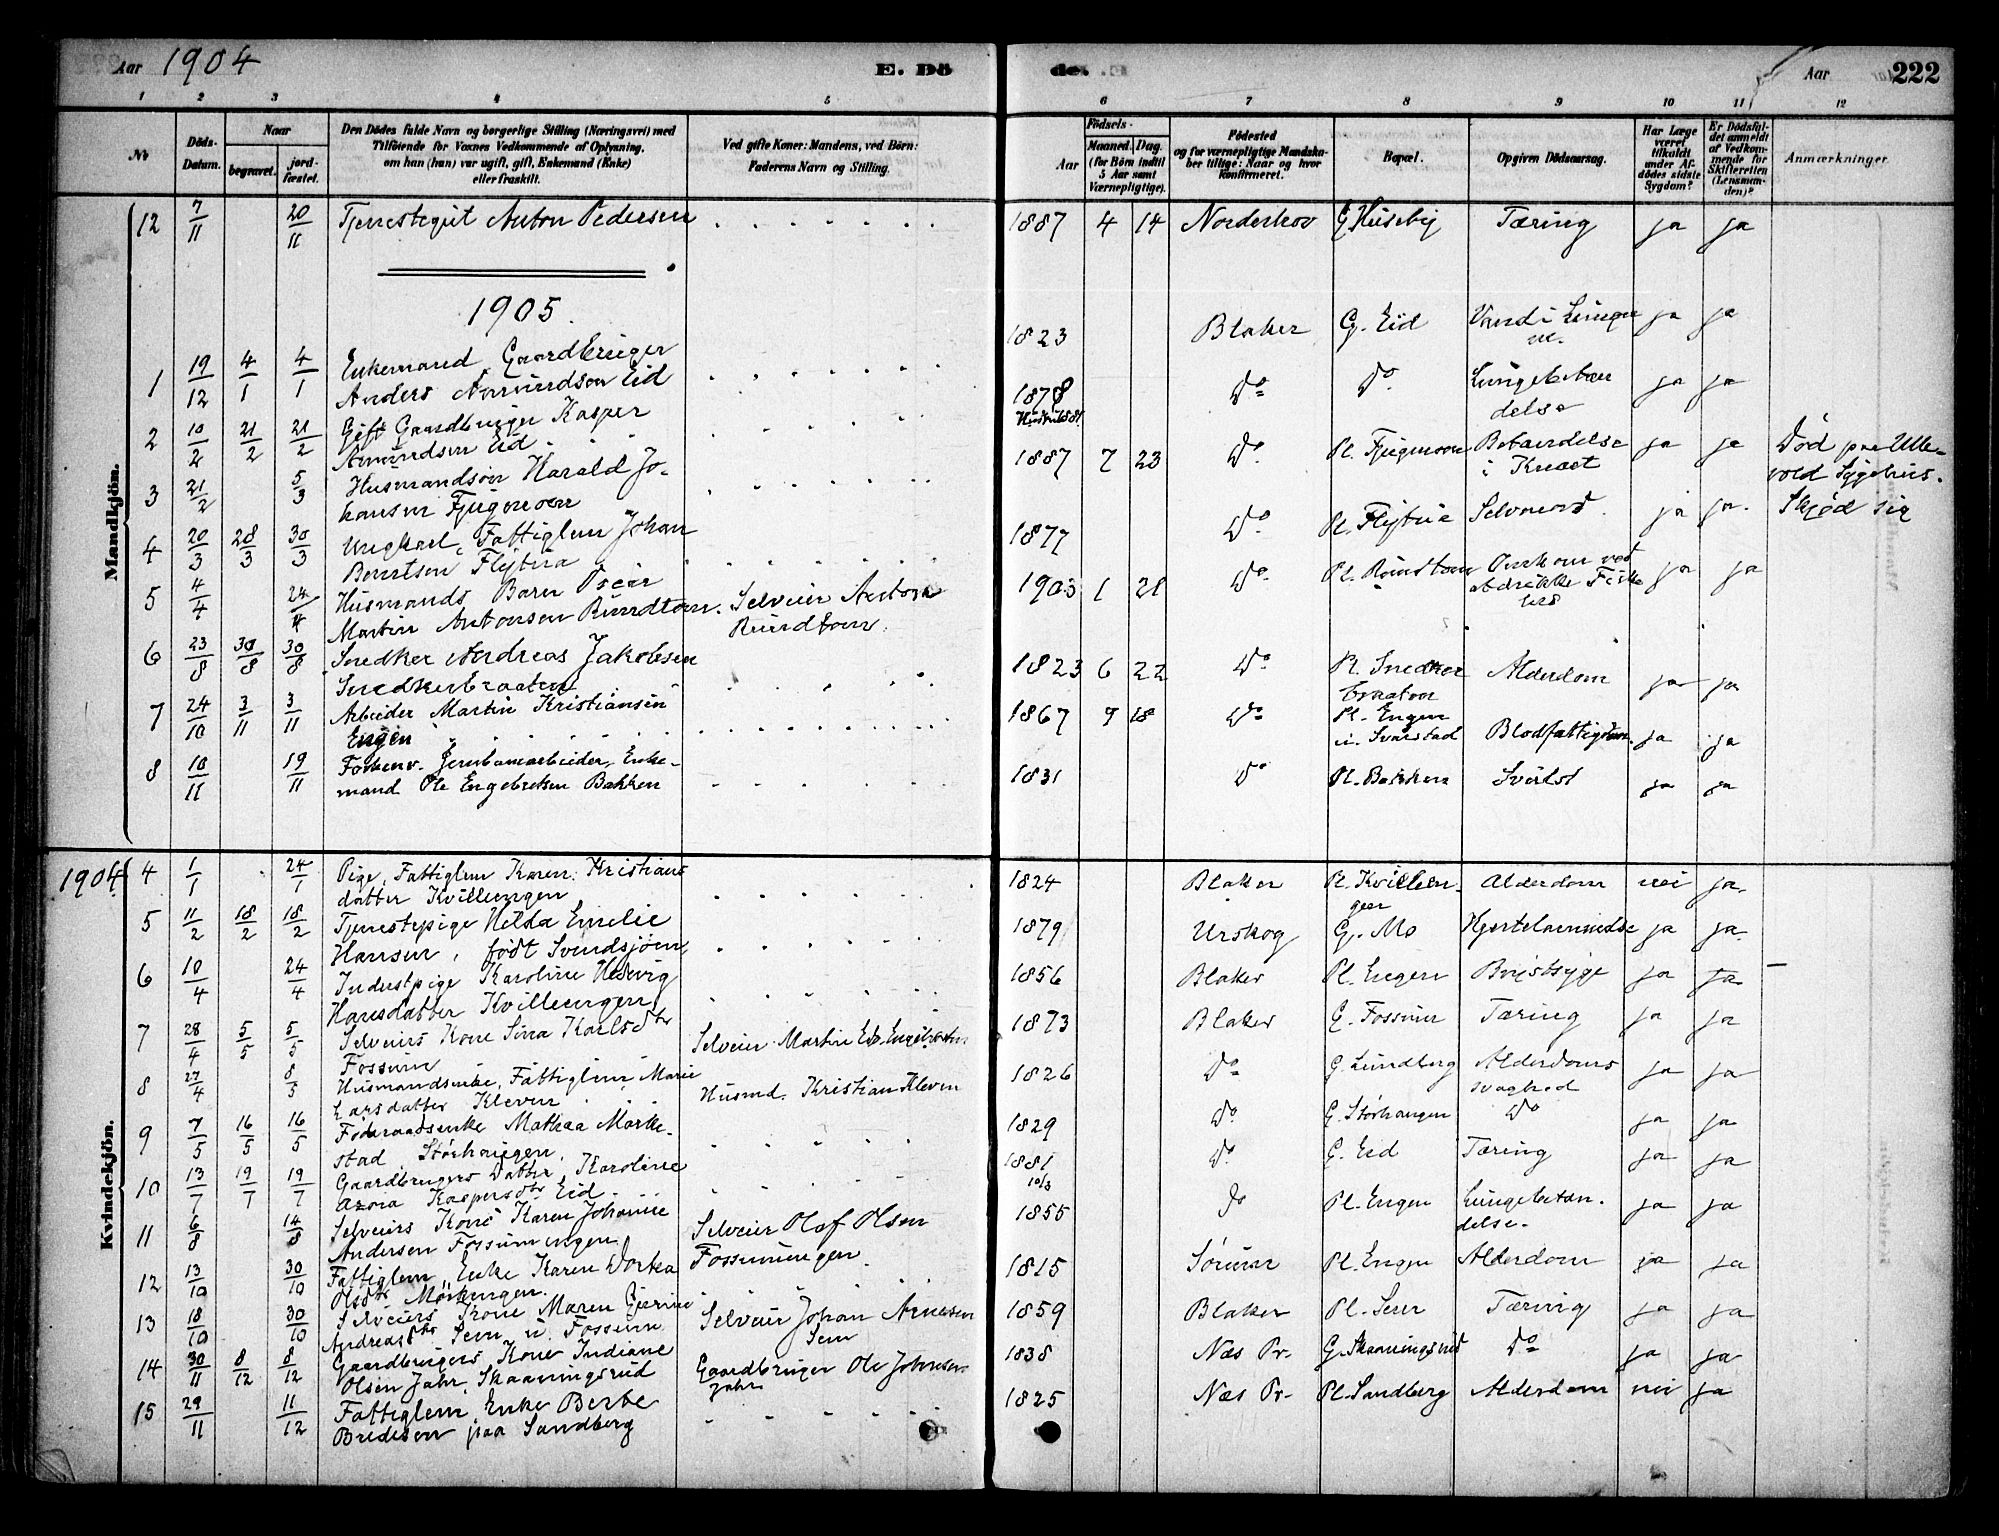 Aar 1904 E. Dö de. Aar 222
1 2 3 4 5 6 7 8 9 10 11 12
No
Döds-Datum.
Naar
begravet.
jord-fæstet.
Den Dödes fulde Navn og borgerlige Stilling (Næringsvei) med
Tilföiende for Voxnes Vedkommende af Oplysning,
om han (hun) var ugift, gift, Enkemand (Enke)
eller fraskilt.
Ved gifte Koner: Mandens, ved Börn:
Faderens Navn og Stilling.
Födsels-
Aar
Maaned. Dag.
(for Börn indtil
5 Aar samt
Værnepligtige).
Födested
og for værnepligtige Mandska-
ber tillige: Naar og hvor
Konfirmeret.
Bopæl.
Opgiven Dödsaarsag.
Har Læge
været
tilkaldt
under Af-
dödes sidste
Sygdom?
Er Dödsfal-
det anmeldt
af Vedkom-
mende for
Skifteretten
(Lensman-
den)?
Anmærkninger.
Mandkjön.
12 7/11 20/11 Tjenestegut Anton Pedersen 1887 4 14 Norderhov G Huseby Tæring ja ja
1905.
1 19/12 4/1 4/1 Enkemand, Gaardbruger
Anders Amundsen Eid 1823 Blaker G. Eid Vand i Lungene ja ja
2 10/2 21/2 21/2 Gift Gaardbruger Kasper
Amundsen Eid. 1878 Do Do Lungebetæn
delse ja ja
3 21/2 5/3 Husmandsøn Harald Jo-
hansen Fjugemoen 1887 7 23 Do Pl. Fjugemoen Betændelse
i Knæet ja ja Død paa Ulle-
vold Sygehus.
4 20/3 28/3 30/3 Ungkarl, Fattiglem Johan
Berntsen Flytua 1877 Do Pl. Flytua Selvmord. ja ja. Skjød sig
5 4/4 24/4 Husmands Barn Oscar
Martin Antonsen Rundtom. Selveier Anton
Rundtom. 1903 1 21 Do Pl. Rundtom Omkom ved
at drikke ja ja
6 23/8 30/8 30/8 Snedker Andreas Jakobsen
Snedkerbraaten 1823 6 22 Do Pl. Snedker
braaten Alderdom ja ja
7 24/10 3/11 3/11 Arbeider Martin Kristiansen
Engen 1867 9 18 Do Pl. Engen
u. Svarstad Blodfattigdom. ja ja
8 10/11 19/11 Forhenv. Jernbanearbeider, Enke-
mand Ole Engebretsen Bakken 1831 Do Pl. Bakken Svulst ja ja
Kvindekjön.
1904 4 1/1 24/1 Pige, Fattiglem Karen Kristians
datter Kvillungen 1824 Blaker Pl. Kvillun-
gen Alderdom nei ja.
5 11/2 18/2 18/2 Tjenestepige Hilda Emelie
Hansen, født Svendsjøen, 1879 Urskog G. Mo Hjertelammelse ja ja.
6 10/4 24/4 Inderstpige Karoline Hedvig
Hansdatter Kvillungen 1856 Blaker Pl. Engen Brystsyge ja ja —
7 28/4 5/5 5/5 Selveiers Kone Sina Karlsdtr
Fossum Selveier Martin Edv. Engebretsen 1873 Blaker G. Fossum Tæring ja ja
8 27/4 8/5 Husmandsenke, Fattiglem Marie
Larsdatter Kleven Husmd. Kristian Kleven 1826 Do G. Lundberg Alderdoms
svaghed ja ja
9 7/5 16/5 16/5 Føderaadsenke Mathea Mørke-
stad Størhaugen. 1829 Do G. Størhaugen Do ja ja
10 13/7 19/7 19/7 Gaardbrugers Datter, Karoline
Azora Kaspersdtr Eid. 1881
10/3 Do G. Eid Tæring ja ja
11 6/8 14/8 Selveiers Kone Karen Johanne
Andersen Fossumengen. Selveier Olaf Olsen
Fossumengen. 1855 Do Pl. Engen Lungebetæn-
delse. ja ja
12 13/10 30/10 Fattiglem, Enke Karen Dorka
Olsdtr Mørkengen. 1815 Sørum Pl. Engen Alderdom ja ja
13 18/10 30/10 Selveiers Kone Maren Gurine
Andreasdtr Sem u. Fossum Selveier Johan Arnesen
Sem 1859 Blaker Pl. Sem Tæring ja ja
14 30/11 8/12 8/12 Gaardbrugers Kone Indiane
Olsen Jahr, Skaaningsrud Gaardbruger Ole Johnsen
Jahr 1838 Næs Pr. G. Skaaningsrud Do ja ja
15 29/11 11/12 Fattiglem, Enke Berthe
Bredesen paa Sandberg 1825 Næs Pr. Pl. Sandberg Alderdom nei ja